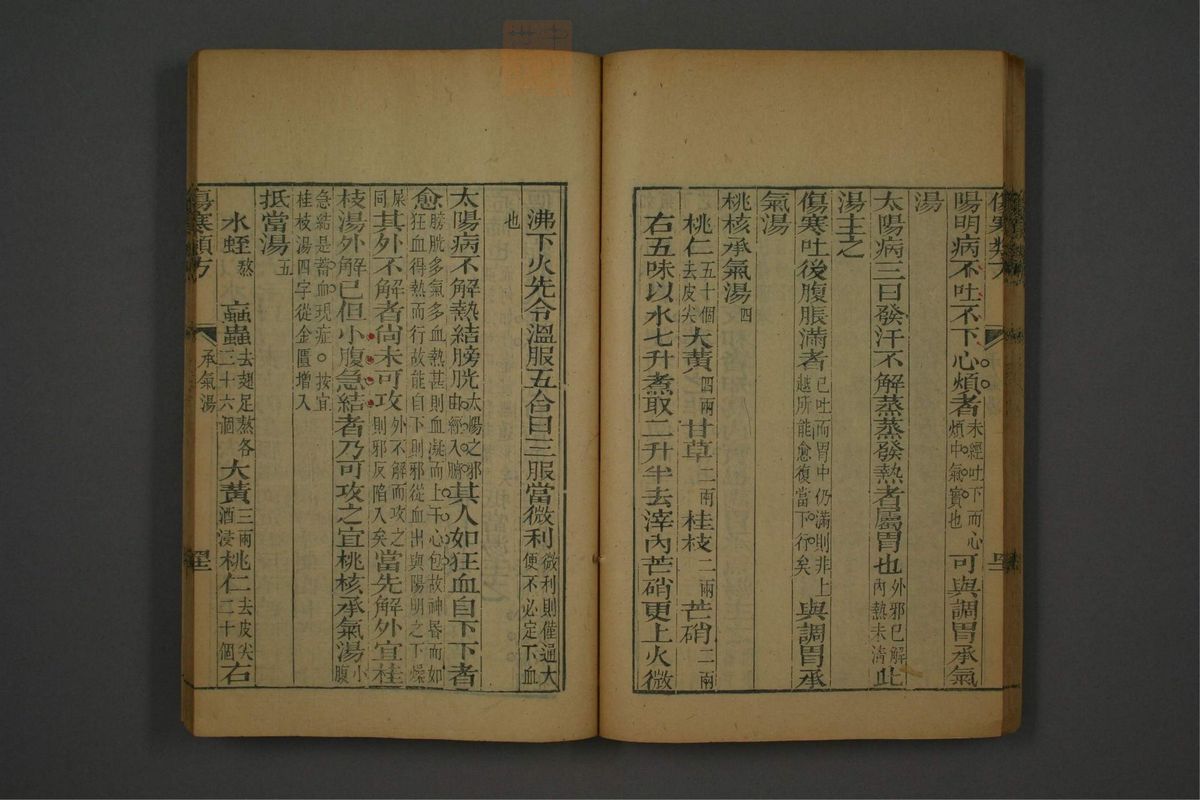 陽明病不吐不下心煩者未經吐下而心煩中氣實也可與調胃承氣
湯
太陽病三日發汗不解蒸蒸發熱者屬胃也外邪已解內熱未清此
湯主之
傷寒吐後腹脹滿者已吐而胃中仍滿則非上越所能愈復當下行矣與調胃承
氣湯
桃核承氣湯四
桃仁五十個去皮尖大黃四兩甘草二兩桂枝二兩芒硝二兩
右五味以水七升煮取二升半去滓內芒硝更上火微
沸下火先令溫服五合日三服當微利微利則僅通大便不必定下血
也
太陽病不解熱結膀胱太陽之邪由經入腑其人如狂血自下下者
愈膀胱多氣多血熱甚則血凝而上干心包故神昏而如狂血得熱而行故能自下則邪從血出與陽明之下燥
屎同其外不解者尚未可攻外不解而攻之則邪反陷入矣當先解外宜桂
枝湯外解已但小腹急結者乃可攻之宜桃核承氣湯小腹
急結是蓄血現症。按宜桂枝湯四字從金匱增入
抵當湯五
水蛭熬䖟蟲去翅足熬各三十六個大黃三兩酒浸桃仁去皮尖二十個右
傷寒類方
承氣湯